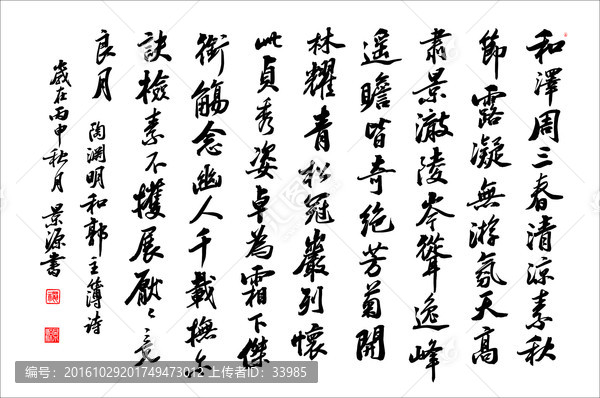 和澤周三春清涼素秋
節露凝無游氛天高
肅景澈陵岑聳逸峰
遥瞻皆奇絶芳菊開
林耀青松冠巖列懷
此貞秀姿卓為霜下傑
銜觴念幽人千載撫尔
訣檢素不擭展厭〻竟
良月 陶淵明和郭主簿诗
歲在丙申秋月 景源書
编号：20161029201749473012 上传者ID：33985